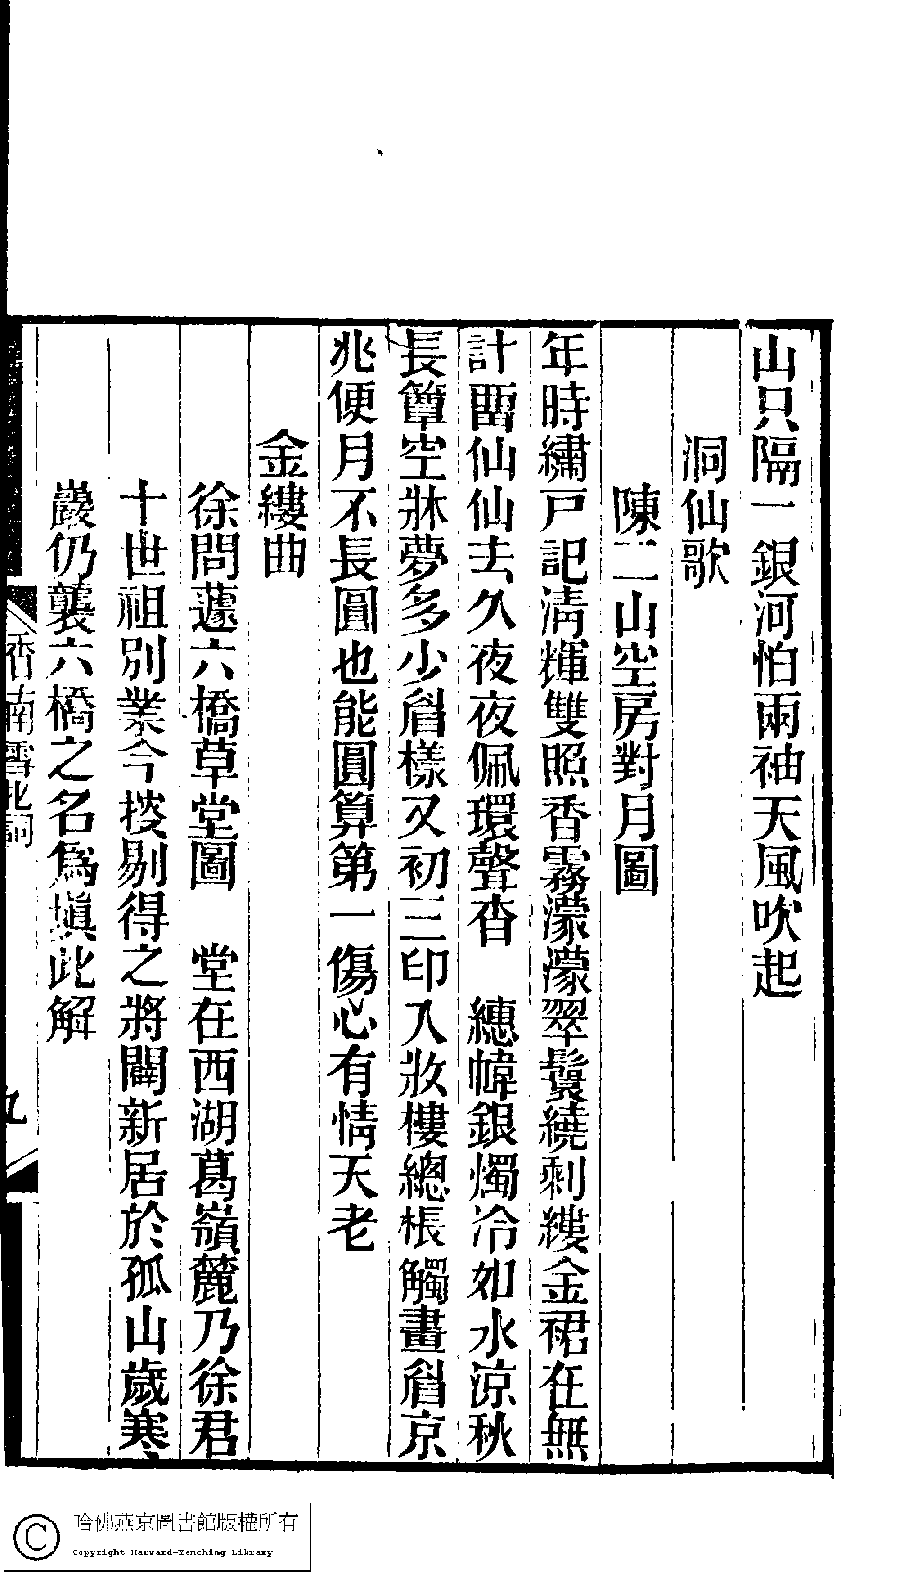 山只隔一銀河怕兩袖天風吹起
洞仙歌
陳二山空房對月圖
年時繡戸記淸輝雙照香霧濛濛翠鬟繞剩縷金裙在無
計畱仙仙去久夜夜佩環聲杳　繐幃銀燭冷如水涼秋
長簟空牀夢多少眉樣又初三印入妝樓總棖觸畫眉京
兆便月不長圓也能圓算第一傷心有情天老
金縷曲
徐問蘧六橋草堂圖　堂在西湖葛嶺麓乃徐君
十世祖別業今搜剔得之將闢新居於孤山歲寒
巖仍襲六橋之名爲塡此解
香南雪北詞
九
哈佛燕京圖書館版權所有
Copyright Harvard-Yenching Library